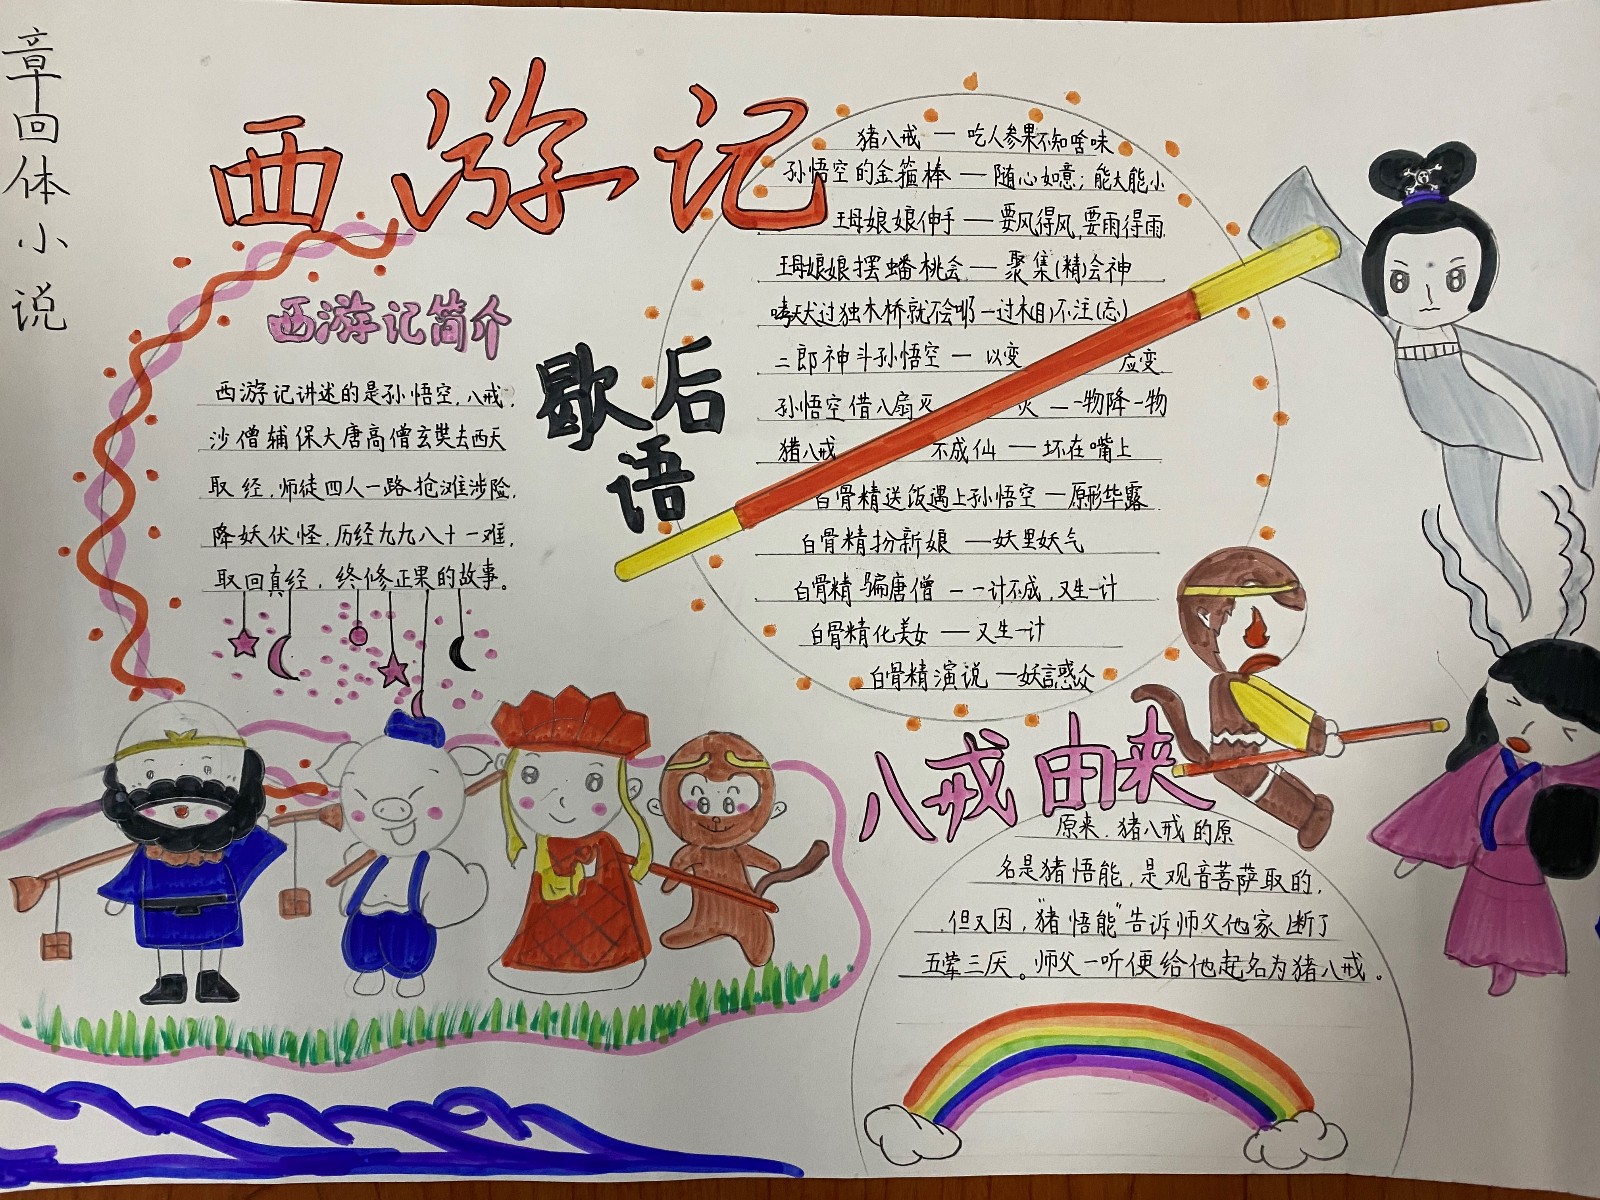 章回体小说
西游记
西游记简介
西游记讲述的是孙悟空,八戒,
沙僧辅保大唐高僧玄奘去西天
取经,师徒四人一路抢滩涉险,
降妖伏怪,历经九九八十一难,
取回真经,终修正果的故事。
歇后
语
猪八戒一吃人参果不知啥味
孙悟空的金箍棒—随心如意;能大能小
王母娘娘伸手—要风得风,要雨得雨
王母娘娘摆蟠桃会—聚集(精)会神
哮天犬过独木桥就不会
一过木(目)不注(忘)
二郎神斗孙悟空一以变 应变
孙悟空借八扇灭 火—一物降一物
猪八戒 不成仙—坏在嘴上
白骨精送饭遇上孙悟空—原形毕露
白骨精扮新娘—妖里妖气
白骨精骗唐僧—一计不成,又生一计
白骨精化美女—又生一计
白骨精演说—妖言惑众
八戒由来
原来,猪八戒的原
名是猪悟能,是观音菩萨取的,
但又因,"猪悟能"告诉师父他家断了
五荤三厌。师父一听便给他起名为猪八戒。